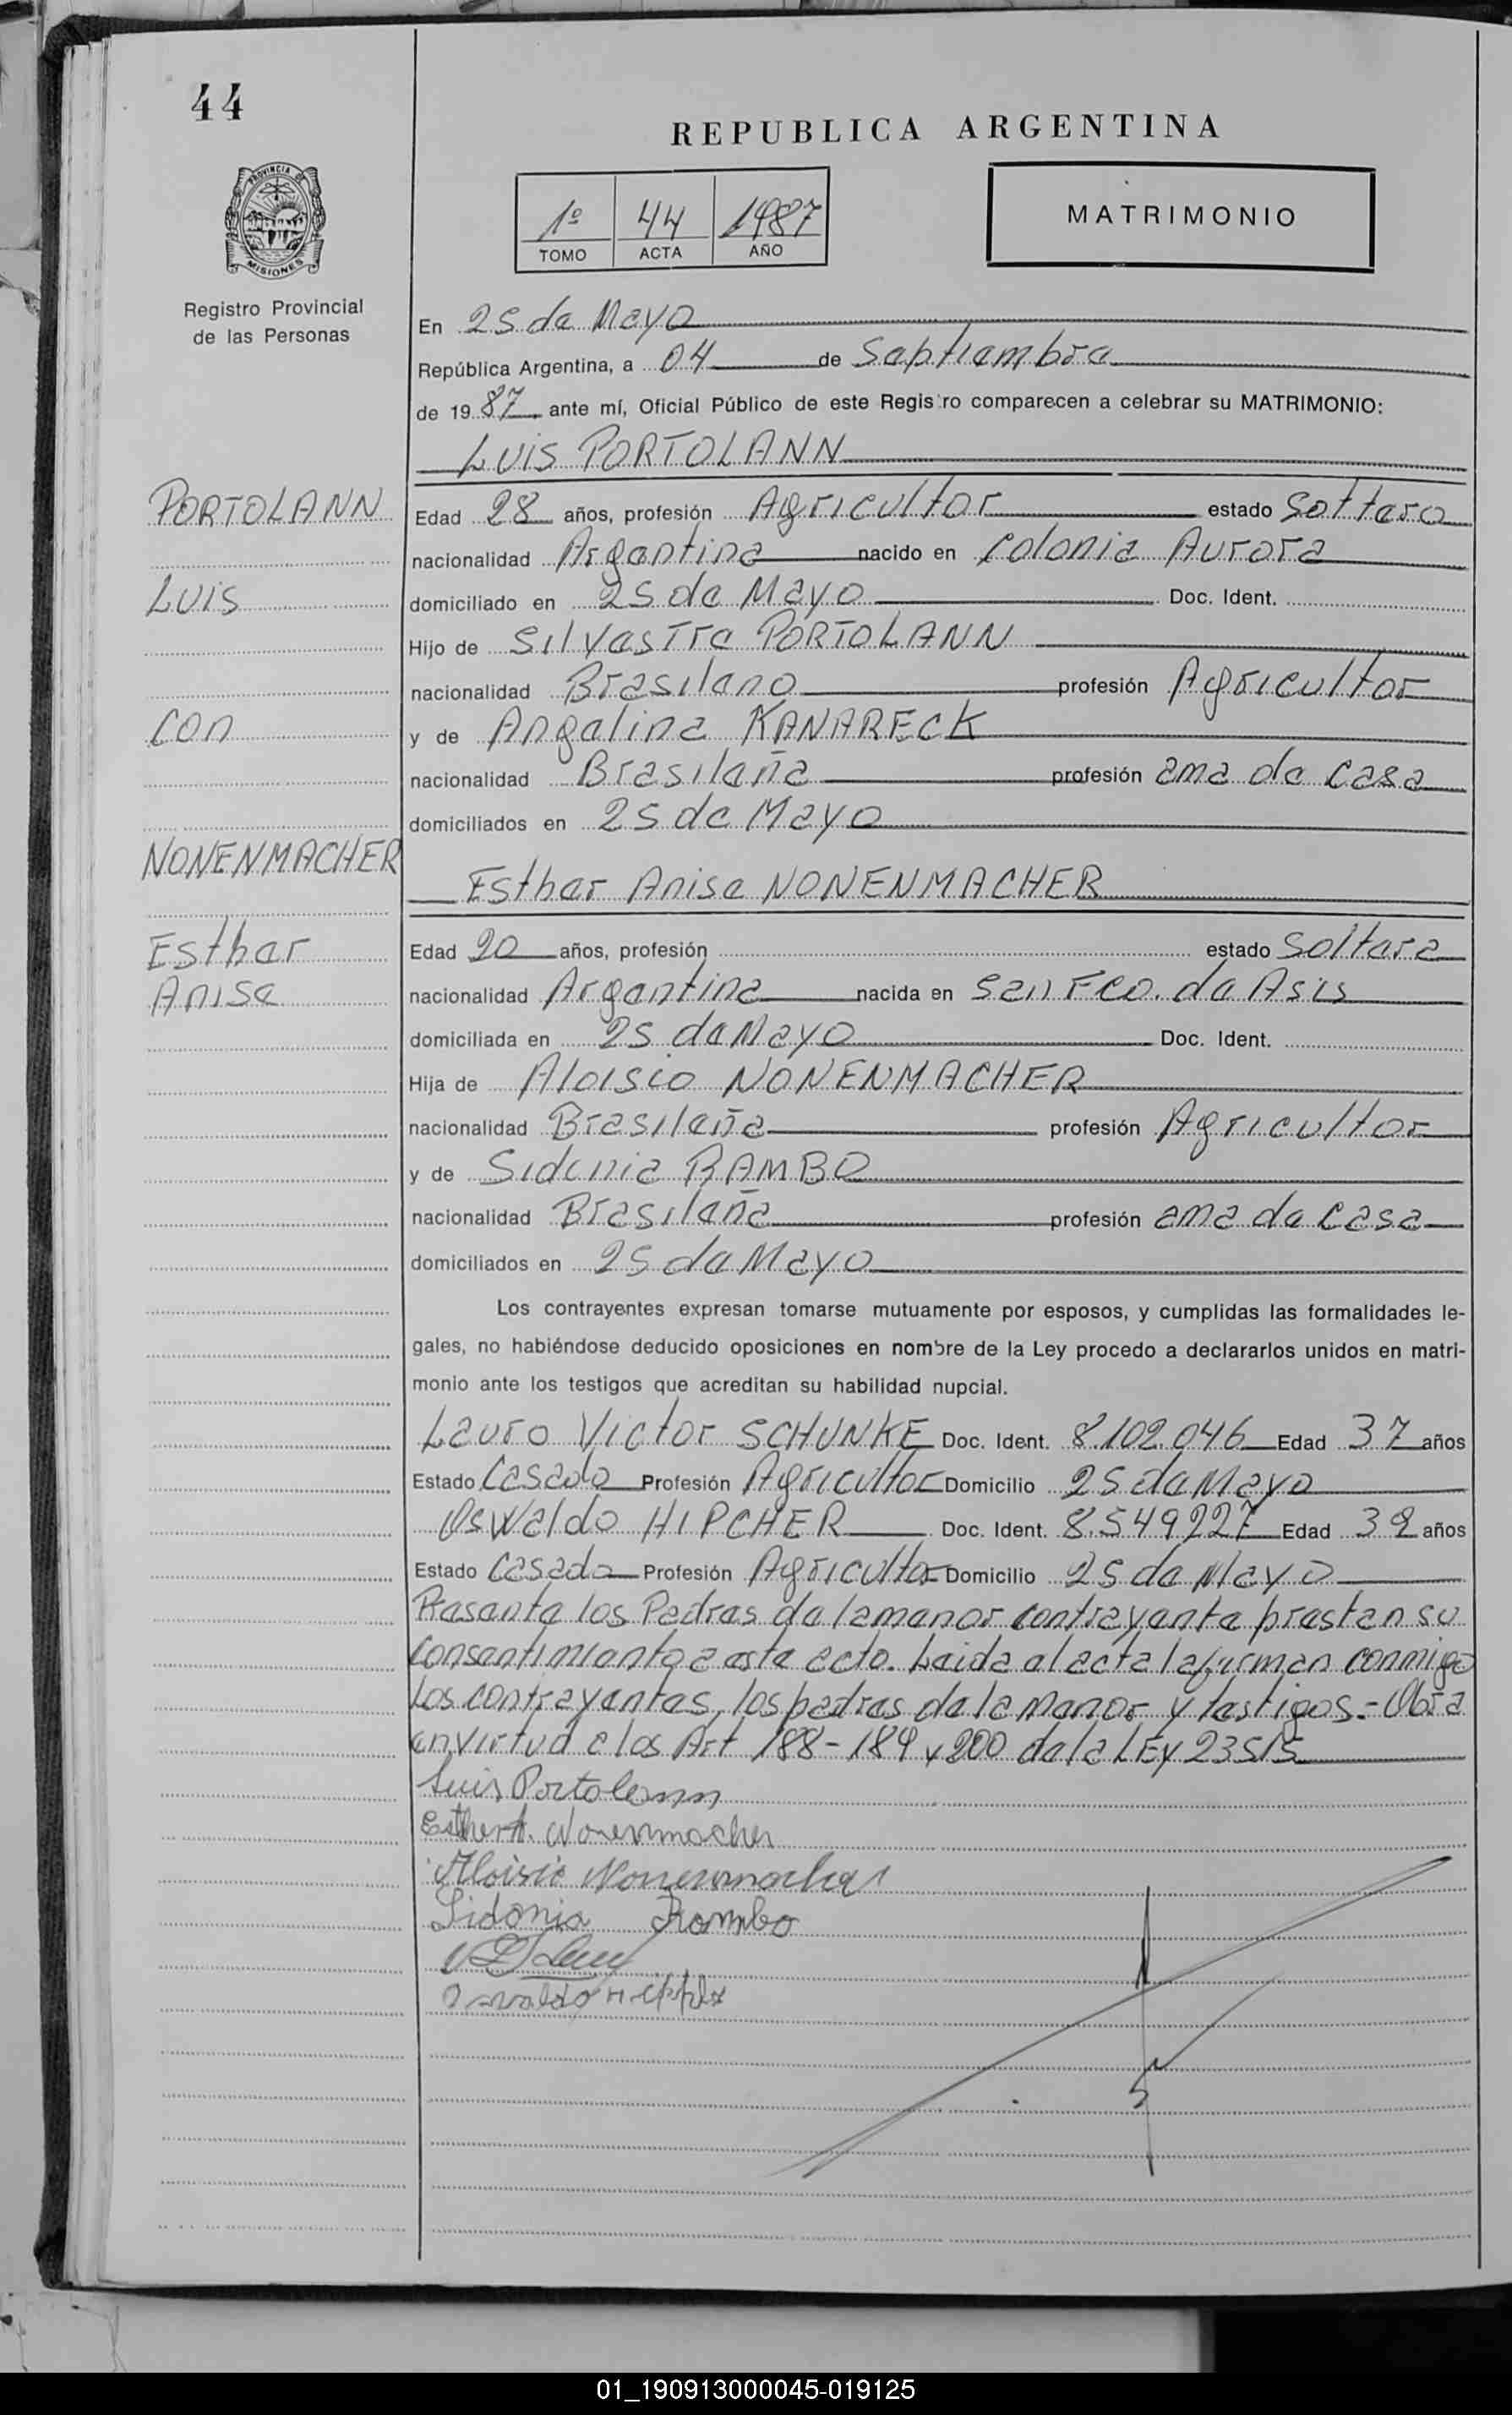 44
REPUBLICA ARGENTINA
PROVINCIA DE
MISIONES
Registro Provincial
de las Personas
1º 44 1987
TOMO ACTA AÑO
MATRIMONIO
En 25 de Mayo
República Argentina, a 04 de Septiembre
de 1987 ante mí, Oficial Público de este Registro comparecen a celebrar su MATRIMONIO:
LUIS PORTOLANN
PORTOLANN
LUIS
con
NONENMACHER
Esther
Anise
Edad 28 años, profesión Agricultor estado Soltero
nacionalidad Argentina nacido en Colonia Aurora
domiciliado en 25 de Mayo Doc. Ident.
Hijo de Silvestre PORTOLANN
nacionalidad Brasilano profesión Agricultor
y de Angelina KANARECK
nacionalidad Brasileña profesión ama de casa
domiciliados en 25 de Mayo
Esther Anise NONENMACHER
Edad 20 años, profesión estado Soltera
nacionalidad Argentina nacida en San Fco. de Asis
domiciliada en 25 de Mayo Doc. Ident.
Hija de Aloisio NONENMACHER
nacionalidad Brasileña profesión Agricultor
y de Sidonia RAMBO
nacionalidad Brasileña profesión ama de casa
domiciliados en 25 de Mayo
Los contrayentes expresan tomarse mutuamente por esposos, y cumplidas las formalidades le-
gales, no habiéndose deducido oposiciones en nombre de la Ley procedo a declararlos unidos en matri-
monio ante los testigos que acreditan su habilidad nupcial.
Lauro Victor SCHUNKE Doc. Ident. 8.102.046 Edad 37 años
Estado Casado Profesión Agricultor Domicilio 25 de Mayo
Oswaldo HIPCHER Doc. Ident. 8.549227 Edad 39 años
Estado Casado Profesión Agricultor Domicilio 25 de Mayo
Presente los Padres de la menor contrayente prestan su
consentimiento a este acto. Leida el acta la firman conmigo
los contrayentes, los padres de la menor y testigos.- Obra
en virtud a los Art 188-189 y 200 de la LEY 23515
Luis Portolann
Esther A. Nonenmacher
Aloisio Nonenmacher
Sidonia Rambo
Osvaldo
01_190913000045-019125